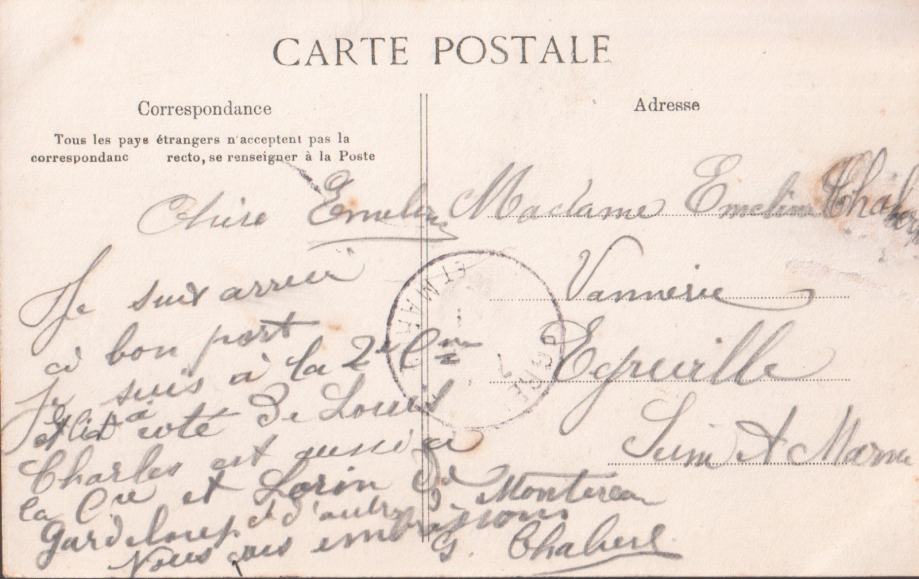 CARTE POSTALE
Correspondance
Tous les pays étrangers n'acceptent pas la
correspondanc recto, se renseigner à la Poste
Adresse
Chère Emeline
Je suis arrivé
à bon port
Je suis à la 2e Cie
à coté de Louis
Charles est aussi à
la Cie et Lorin de
et d'autres Montereau
Nous vous embrassons
G. Chabert
Madame Emeline Chabert
Vannerie
Egreville
Seine et Marne
ET MAR